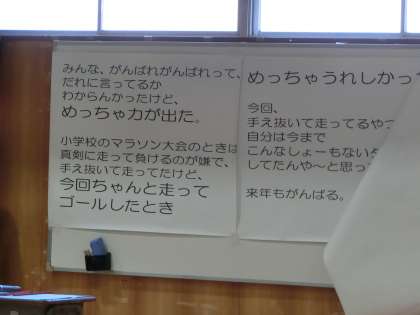 みんな、がんばれがんばれって、
だれに言ってるか
わからんかったけど、
めっちゃ力が出た。
小学校のマラソン大会のときは
真剣に走って負けるのが嫌で、
手え抜いて走ってたけど、
今回ちゃんと走って
ゴールしたとき
めっちゃうれしかっ
今回、
手え抜いて走ってるやつ
自分は今まで
こんなしょーもない
してたんや~と思っ
来年もがんばる。